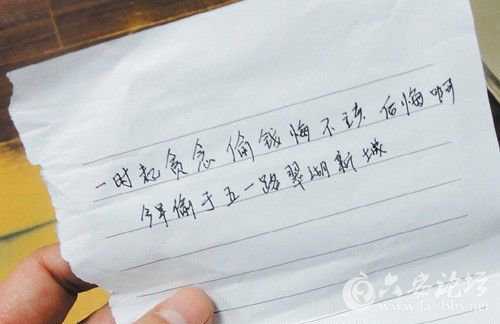 一时起贪念 偷钱悔不该 后悔啊
今早偷于五一路翠湖新城
六安论坛